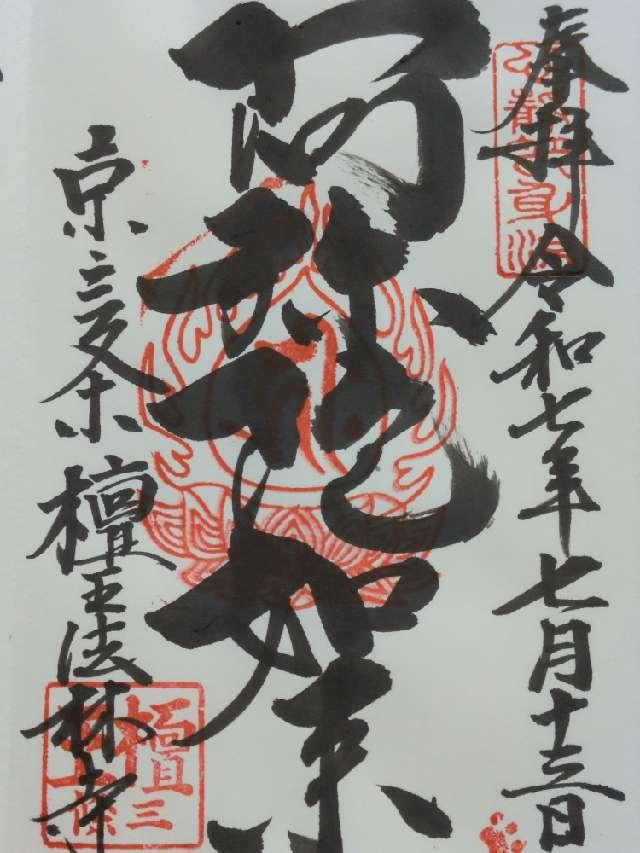 奉拝
令和七年七月十三日
阿弥陀如来
京三条
檀王法林寺